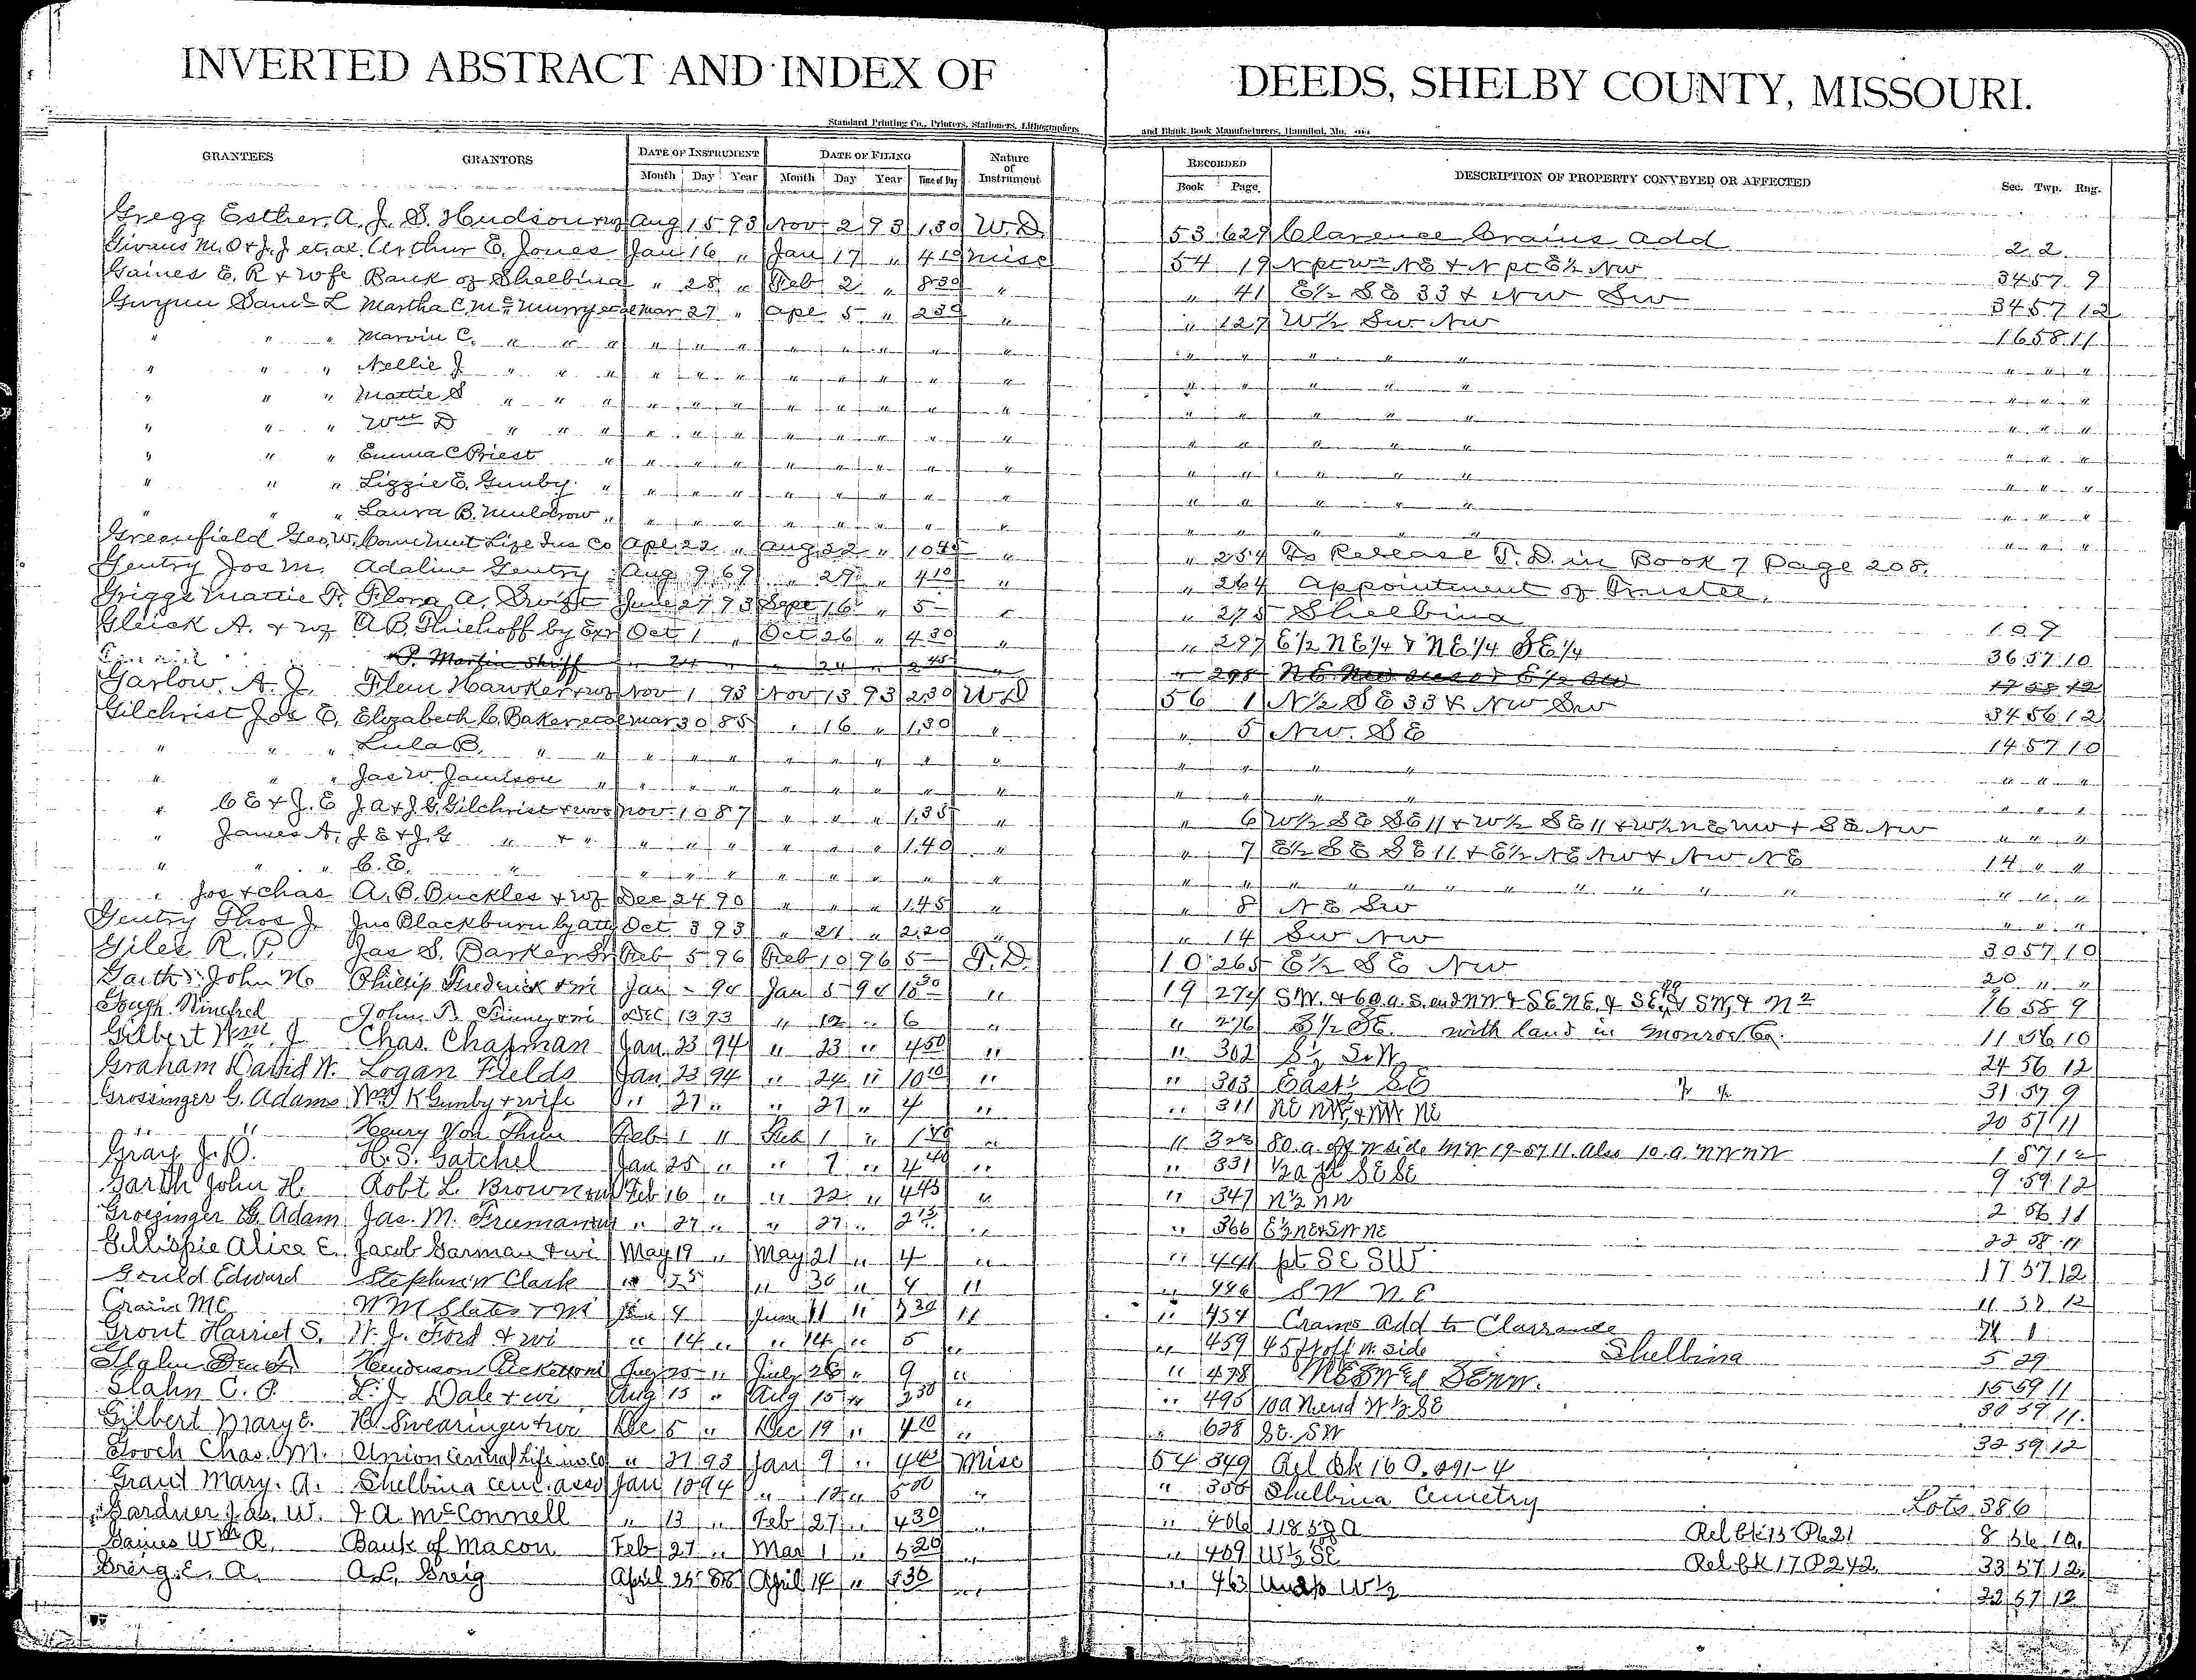 INVERTED ABSTRACT AND INDEX OF DEEDS, SHELBY COUNTY, MISSOURI.
Standard Printing Co., Printers, Stationers, Lithographers and Blank Book Manufacturers, Hannibal, Mo.
GRANTEES GRANTORS DATE OF INSTRUMENT DATE OF FILING Nature of Instrument RECORDED DESCRIPTION OF PROPERTY CONVEYED OR AFFECTED Sec. Twp. Rng.
Month Day Year Month Day Year Time of Day Book Page.
Gregg Esther. A. J. S. Hudson & wf Aug 15 93 Nov 2 93 1.30 W.D. 53 629 Clarence Crains add 2 2
Givans M. O & J. J et al. Arthur E. Jones Jan 16 " Jan 17 " 4 10 Misc 54 19 N pt W 1/2 NE & N pt E 1/2 NW 34 57 9
Gaines E. R & wife Bank of Shelbina " 28 " Feb 2 " 8 30 " " 41 E 1/2 SE 33 & NW SW 34 57 12
Gwynn Saml L Martha C. McMurry et al Mar 27 " Apl 5 " 2 30 " " 127 W 1/2 SW NW 16 58 11
" " " Marvin C. " " " " " " " " " " " " " " " " " " "
" " " Nellie J " " " " " " " " " " " " " " " " " " "
" " " Mattie S " " " " " " " " " " " " " " " " " " "
" " " Wm D " " " " " " " " " " " " " " " " " " "
" " " Emma C Priest " " " " " " " " " " " " " " " " "
" " " Lizzie E. Gunby " " " " " " " " " " " " " " " " "
" " " Laura B. Muldrow " " " " " " " " " " " " " " " " "
Greenfield Geo. W. Conn Mut Life Ins Co Apl 22 " Aug 22 " 10 45 " " 254 To Release T. D. in Book 7 Page 208.
Gentry Jos M. Adaline Gentry Aug 9 69 " 29 " 4 10 " " 264 Appointment of Trustee.
Griggs Mattie F. Flora A. Swift June 27 93 Sept 16 " 5 - " " 275 Shelbina 10 9
Gleick A. & wf A. B. Thiehoff by Exr Oct 1 " Oct 26 " 4 30 " " 297 E 1/2 NE 1/4 & NE 1/4 SE 1/4 36 57 10
P. Martin Shriff " 24 " " 24 " 2 45 " " 298 17 58 12
Garlow. A. J. Flem Hawker & wf Nov 1 93 Nov 13 93 2.30 W.D 56 1 N 1/2 SE 33 & NW SW 34 56 12
Gilchrist Jos E. Elizabeth C. Baker et al Mar 30 85 " 16 " 1.30 " " 5 NW. SE 14 57 10
" " " Lula B. " " " " " " " " " " " " " " " " "
" " " Jas W. Jamison " " " " " " " " " " " " " " " "
" C E & J. E J A & J. G. Gilchrist & wvs Nov. 10 87 " " " 1.35 " " 6 W 1/2 SE SE 11 & W 1/2 SE 11 & W 1/2 NE NW & SE NW " " "
" James A. J E & J. G " & " " " " " " " 1.40 " " 7 E 1/2 SE SE 11 & E 1/2 NE NW & NW NE 14 " "
" " " C. E. " " " " " " " " " " " " " " " " " " " "
" Jos & Chas A. B. Buckles & wf Dec 24 90 " " " 1.45 " " 8 NE SW " " "
Gentry Thos J. Jno Blackburn by atty Oct 3 93 " 21 " 2.20 " " 14 SW NW 30 57 10
Giles R. P. Jas S. Barker Sr Feb 5 96 Feb 10 96 5 - T.D. 10 265 E 1/2 SE NW 20 " "
Garth John H. Phillip Frederick & wi Jan - 94 Jan 5 94 10 30 " 19 274 16 58 9
Gough Winefred John Finney & wi Dec 13 93 " 12 " 6 " " 276 with land in Monroe Co. 11 56 10
Gilbert Wm. J Chas. Chapman Jan 23 94 " 23 " 4 50 " " 302 S 1/2 S.W. 24 56 12
Graham David W. Logan Fields Jan 23 94 " 24 " 10 10 " " 303 East 1/2 SE 31 57 9
Grossinger G. Adams Wm K Gunby & wife " 27 " " 27 " 4 " " 311 NE NW, & NW NE 20 57 11
" " Henry Von Thun Feb 1 " Feb 1 " " " 80. a. off W side NW 19-57 11. Also 10. a. NW NW 1 57 12
Gray J. O. H. S. Gatchel Jan 25 " " 7 " 4 40 " " 331 1/2 a pt SE SE 9 59 12
Garth John H. Robt L. Brown & wi Feb 16 " " 22 " 4 45 " " 347 N 1/2 NW 2 56 11
Groezinger G. Adam Jas. M. Freeman & wi " 27 " " 27 " 2 15 " " 366 E 1/2 NE & SW NE 22 58 11
Gillispie Alice E. Jacob Garman & wi May 19 " May 21 " 4 " " 441 pt SE SW 17 57 12
Gould Edward Stephen W Clark " 25 " 30 " 4 " " 446 SW NE 11 57 12
Crain M E W M Slates & wi Jun 4 June 11 " 3 30 " " 454 Crams Add to Clarrance
Grout Harriet S. W. J. Ford & wi " 14 " " 14 " 5 " " 459 45 ft off N. Side Shelbina 5 29
Henderson Pickett & wi July 25 " July 26 " 9 " " 478 15 59 11
Glahn C. P. L. J. Dale & wi Aug 15 " Aug 15 " 2 30 " " 495 10 a N end W 1/2 SE 30 59 11.
Gilbert Mary E. H. Swearinger & wi Dec 5 " Dec 19 " 4 10 " " 628 SE. SW 32 59 12
Gooch Chas. M. Union Central Life ins. Co " 27 93 Jan 9 " 4 40 Misc 54 349 Rel Bk 16 P. 291-4
Grant Mary. A. Shelbina Cem. assn Jan 12 94 " 12 " 5 00 " " 350 Shelbina Cemetry Lots 386
Gardner Jas. W. J A. McConnell " 13 " Feb 27 " 4 30 " " 406 118 50/100 a Rel Bk 15 P 621 8 56 10.
Gaines Wm R. Bank of Macon Feb 27 " Mar 1 " 5 20 " " 409 W 1/2 SE Rel Bk 17 P 242 33 57 12.
Greig. E. A. A. L. Greig April 25 88 April 14 " 5 30 " " 463 W 1/2 22 57 12